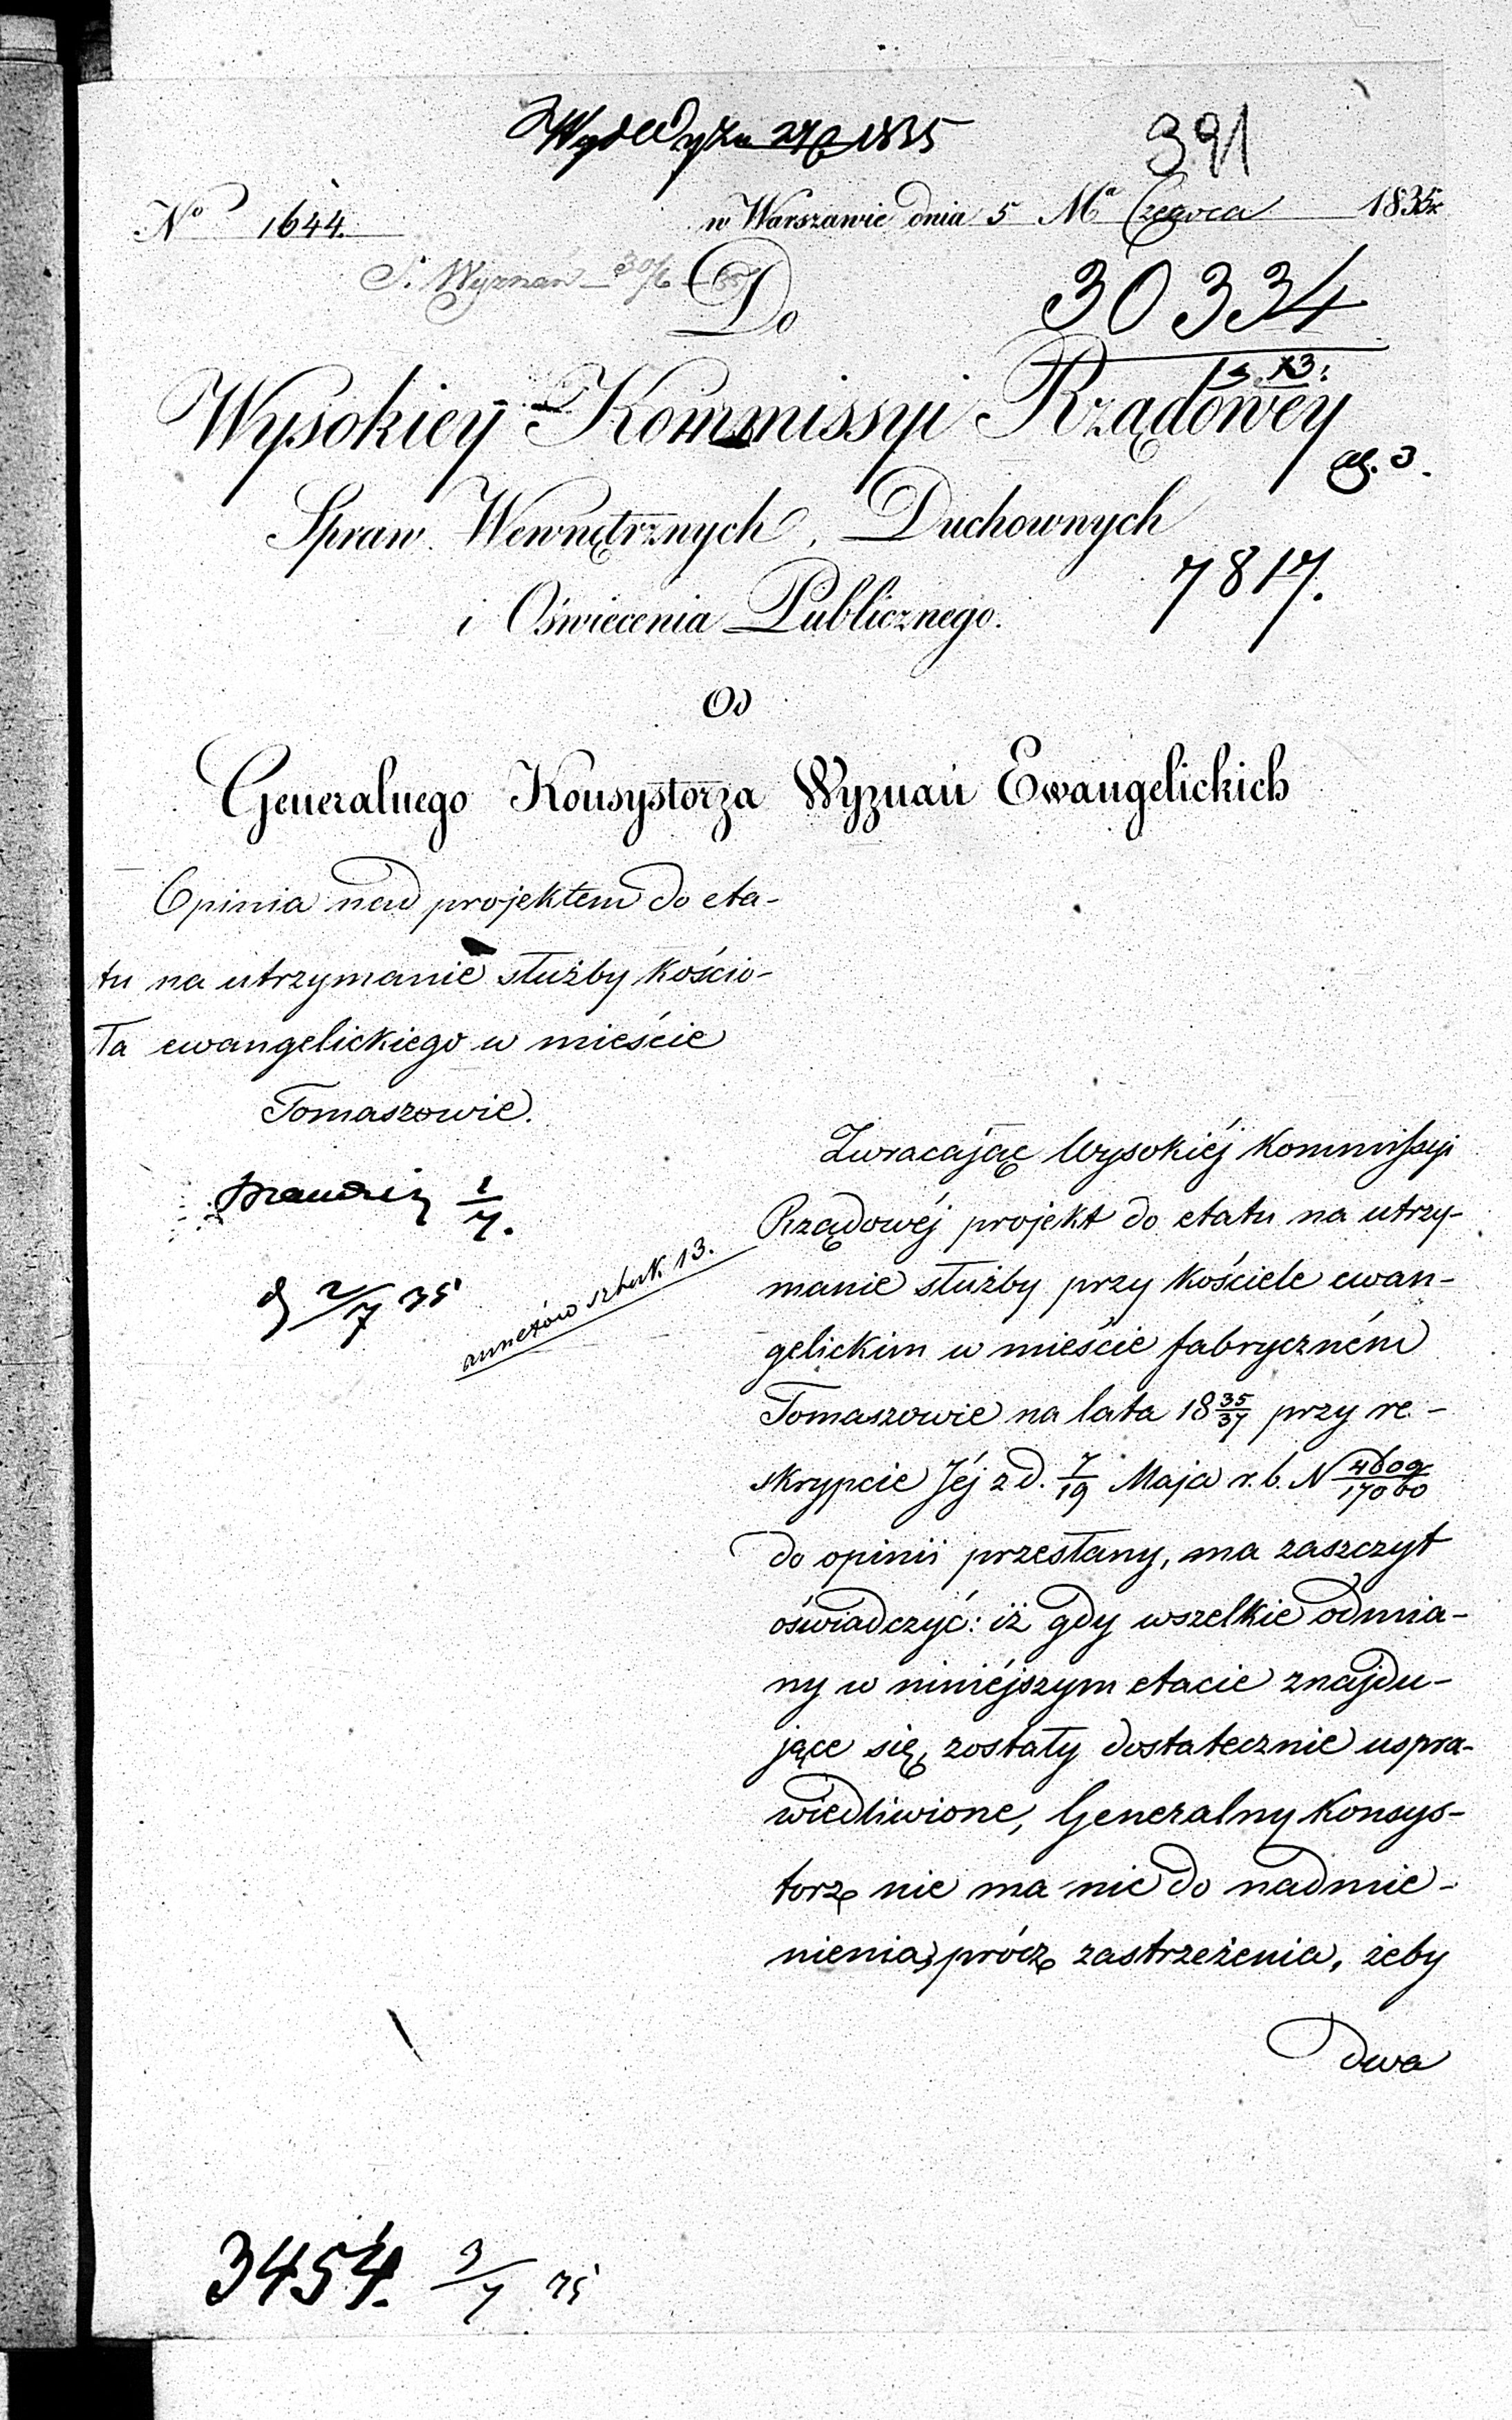 391
No 1644. w Warszawie dnia 5 Ma Czerwca 1835r
S. Wyznań 30/6 35
Do
30334
Wysokiey Kommissyi Rządowey
Spraw Wewnętrznych, Duchownych
7817.
i Oświecenia Publicznego.
Od
Generalnego Konsystorza Wyznań Ewangelickich
Opinia nad projektem do eta-
tu na utrzymanie służby kościo-
ła ewangelickiego w mieście
Tomaszowie.
1/7.
2/7 35
annexów sztuk 13.
Zwracając Wysokiéj Kommissyi
Rządowéj projekt do etatu na utrzy-
manie służby przy kościele ewan-
gelickim w mieście fabryczném
Tomaszowie na lata 18 35/37 przy re-
skrypcie Jéj z d. 7/19 Maja r. b. N
do opinii przesłany, ma zaszczyt
oświadczyć: iż gdy wszelkie odmia-
ny w niniéjszym etacie znajdu-
jące się, zostały dostatecznie uspra-
wiedliwione, Generalny Konsys-
torz nie ma nic do nadmie-
nienia, prócz zastrzeżenia, żeby
dwa
3454. 3/7 35